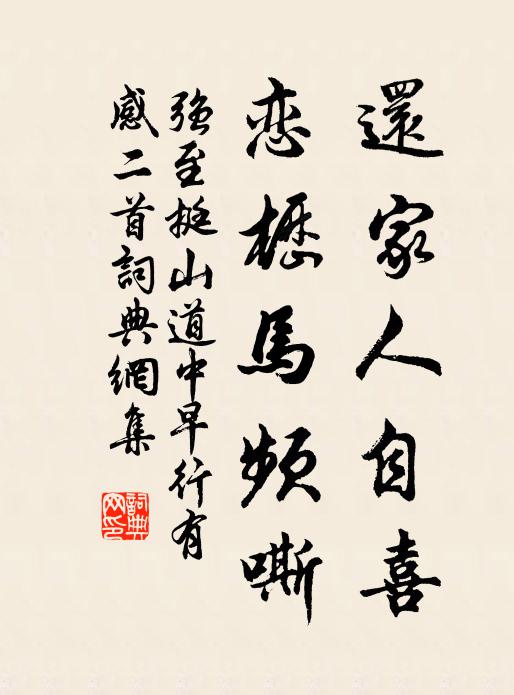 還家人自喜
恋櫪馬頻嘶
強至挺山道中早行有
感二首詞典網集
詞典
网印